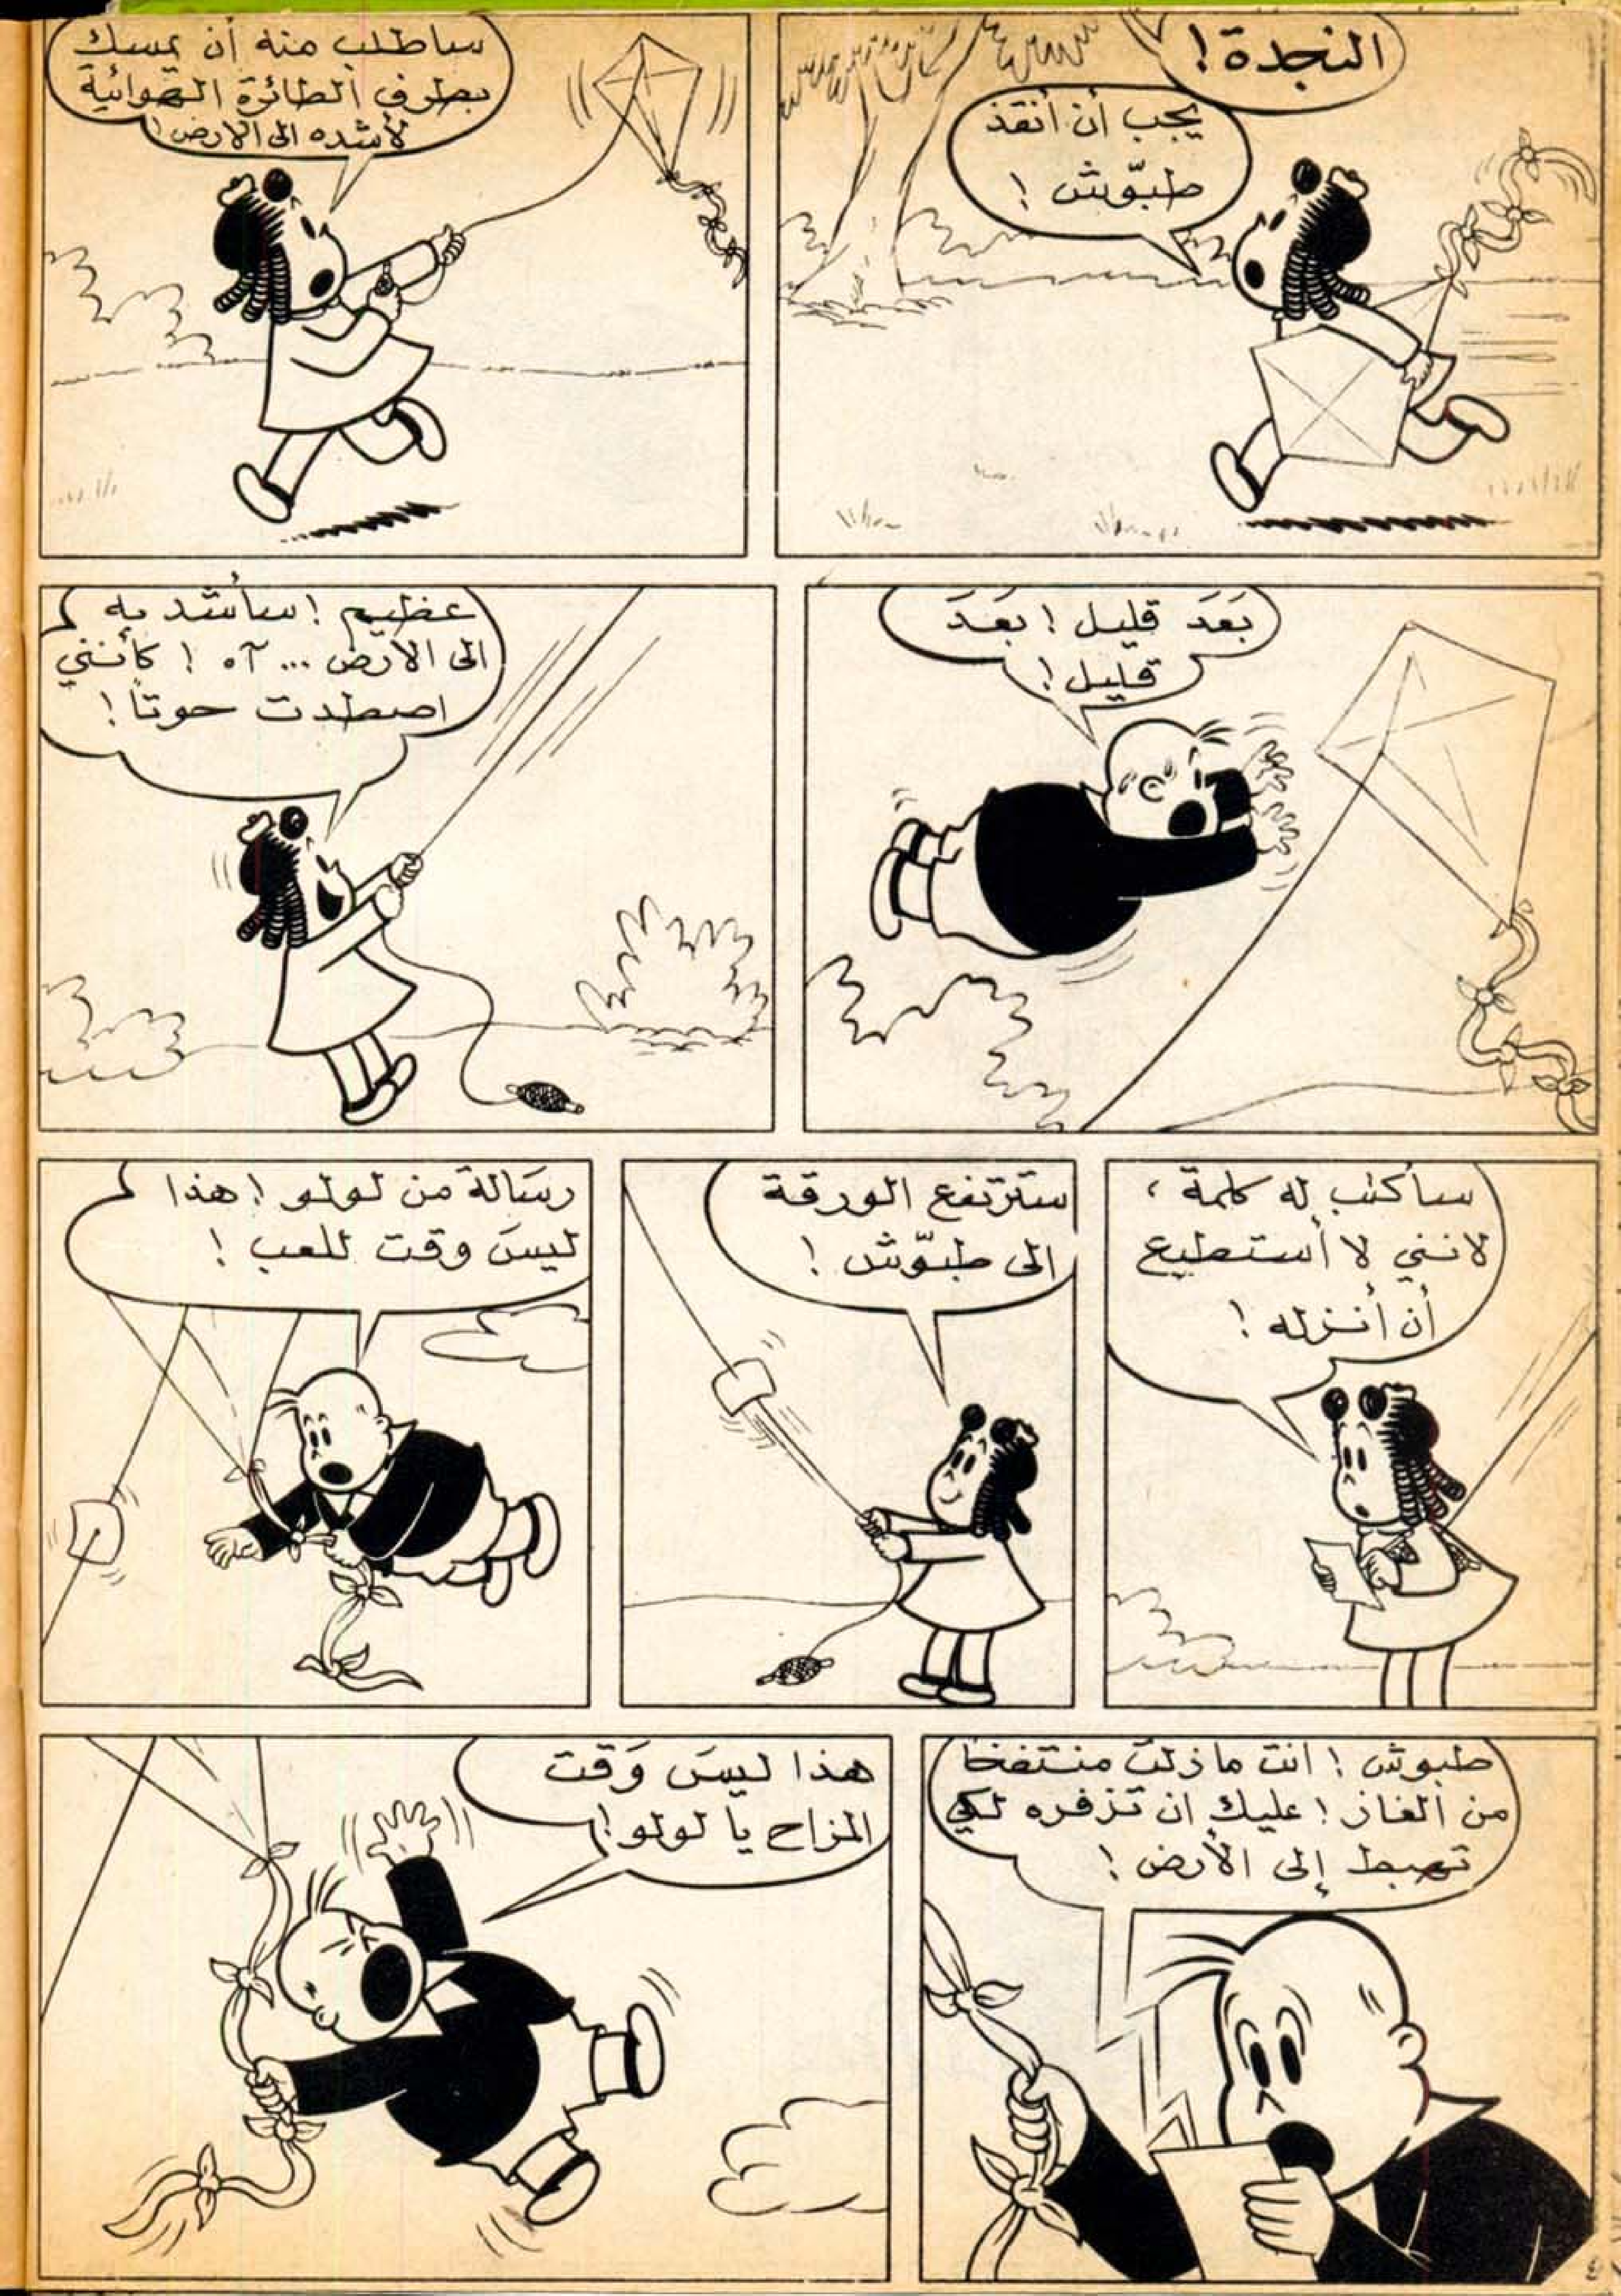 النجدة!
يجب أن أنقذ
طبّوش!
سأطلب منه أن يمسك
بطرف الطائرة الهوائية
لأشده الى الارض!
بَعدَ قليل! بَعدَ
قليل!
عظيم! سأشد به
الى الارض... آه! كأنني
اصطدت حوتاً!
سأكتب له كلمة،
لانني لا أستطيع
أن أنزله!
ستَرتفع الورقة
الى طبّوش!
رسَالة من لولو! هذا
ليسَ وقت للعب!
طبوش! انت مازلت منتفخا
من الغاز! عليك ان تزفره لكي
تهبط إلى الأرض!
هذا ليسَ وَقت
المزاح يا لولو!